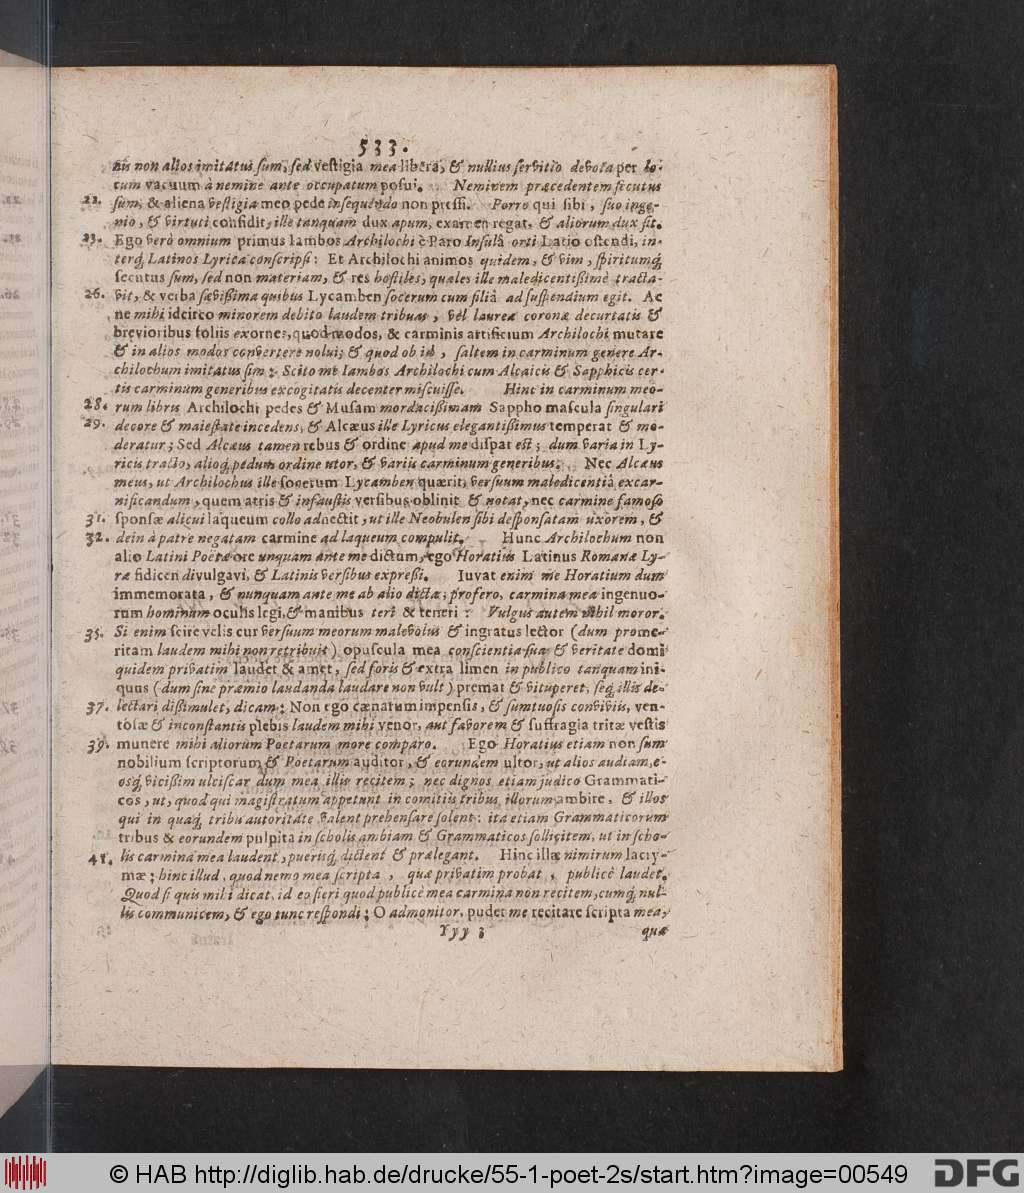 533.
nis non alios imitatus sum, sed vestigia mea libera, & nullius servitio devota per lo-
cum vacuum à nemine ante occupatum posui. Neminem præcedentem secutus
22. sum, & aliena vestigia meo pede insequendo non pressi. Porro qui sibi, suo inge-
nio, & virtuti confidit, ille tanquam dux apum, examen regat, & aliorum dux sit.
23. Ego verò omnium primus Iambos Archilochi è Paro Insulâ orti Latio ostendi, in-
terq́; Latinos Lyrica conscripsi: Et Archilochi animos quidem, & vim, spiritumq́;
secutus sum, sed non materiam, & res hostiles, quales ille maledicentissimè tracta-
26. vit, & verba sævissima quibus Lycamben socerum cum filiâ ad suspendium egit. Ac
ne mihi idcirco minorem debito laudem tribuas, vel laureæ coronæ decurtatis &
brevioribus foliis exornes, quod modos, & carminis artificium Archilochi mutare
& in alios modos convertere nolui; & quod ob id, saltem in carminum genere Ar-
chilochum imitatus sim: Scito me Iambos Archilochi cum Alcaicis & Sapphicis cer-
tis carminum generibus excogitatis decenter miscuisse. Hinc in carminum meo-
28. rum libris Archilochi pedes & Musam mordacissimam Sappho mascula singulari
29. decore & maiestate incedens, & Alcæus ille Lyricus elegantissimus temperat & mo-
deratur; Sed Alcæus tamen rebus & ordine apud me dispar est; dum varia in Ly-
ricis tracto, alioq́; pedum ordine utor, & variis carminum generibus. Nec Alcæus
meus, ut Archilochus ille socerum Lycamben quærit, versuum maledicentiâ excar-
nificandum, quem atris & infaustis versibus oblinit & notat, nec carmine famoso
31. sponsæ alicui laqueum collo adnectit, ut ille Neobulen sibi desponsatam uxorem, &
32. dein à patre negatam carmine ad laqueum compulit. Hunc Archilochum non
alio Latini Poëtæ ore unquam ante me dictum, ego Horatius Latinus Romanæ Ly-
ræ fidicen divulgavi, & Latinis versibus expressi. Iuvat enim me Horatium dum
immemorata, & nunquam ante me ab alio dicta; profero, carmina mea ingenuo-
rum hominum oculis legi, & manibus teri & teneri: Vulgus autem nihil moror.
35. Si enim scire velis cur versuum meorum malevolus & ingratus lector (dum prome-
ritam laudem mihi non retribuit) opuscula mea conscientia sua & veritate domi
quidem privatim laudet & amet, sed foris & extra limen in publico tanquam ini-
quus (dum sine præmio laudanda laudare non vult) premat & vituperet, seq́; illis de-
37. lectari dissimulet, dicam: Non ego cænarum impensis, & sumtuosis conviviis, ven-
tosæ & inconstantis plebis laudem mihi venor, aut favorem & suffragia tritæ vestis
39. munere mihi aliorum Poetarum more comparo. Ego Horatius etiam non sum
nobilium scriptorum & Poetarum auditor, & eorundem ultor, ut alios audiam, e-
osq́; vicissim ulciscar dum mea illis recitem; nec dignos etiam judico Grammati-
cos, ut, quod qui magistratum appetunt in comitiis tribus illorum ambire, & illos
qui in quaq́; tribu autoritate valent prehensare solent: ita etiam Grammaticorum
tribus & eorundem pulpita in scholis ambiam & Grammaticos sollicitem, ut in scho-
41. lis carmina mea laudent, puerisq́; dictent & prælegant. Hinc illæ nimirum lacry-
mæ; hinc illud, quod nemo mea scripta, quæ privatim probat, publicè laudet.
Quod si quis mihi dicat, id eo fieri quod publicè mea carmina non recitem, cumq́; nul-
lis communicem, & ego tunc respondi; O admonitor, pudet me recitare scripta mea,
Yyy 3 quæ
© HAB http://diglib.hab.de/drucke/55-1-poet-2s/start.htm?image=00549 DFG